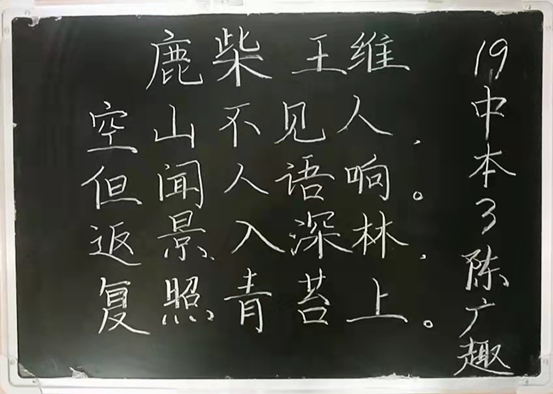 鹿柴 王维
空山不见人,
但闻人语响。
返景入深林,
复照青苔上。
19中本3陈广趣